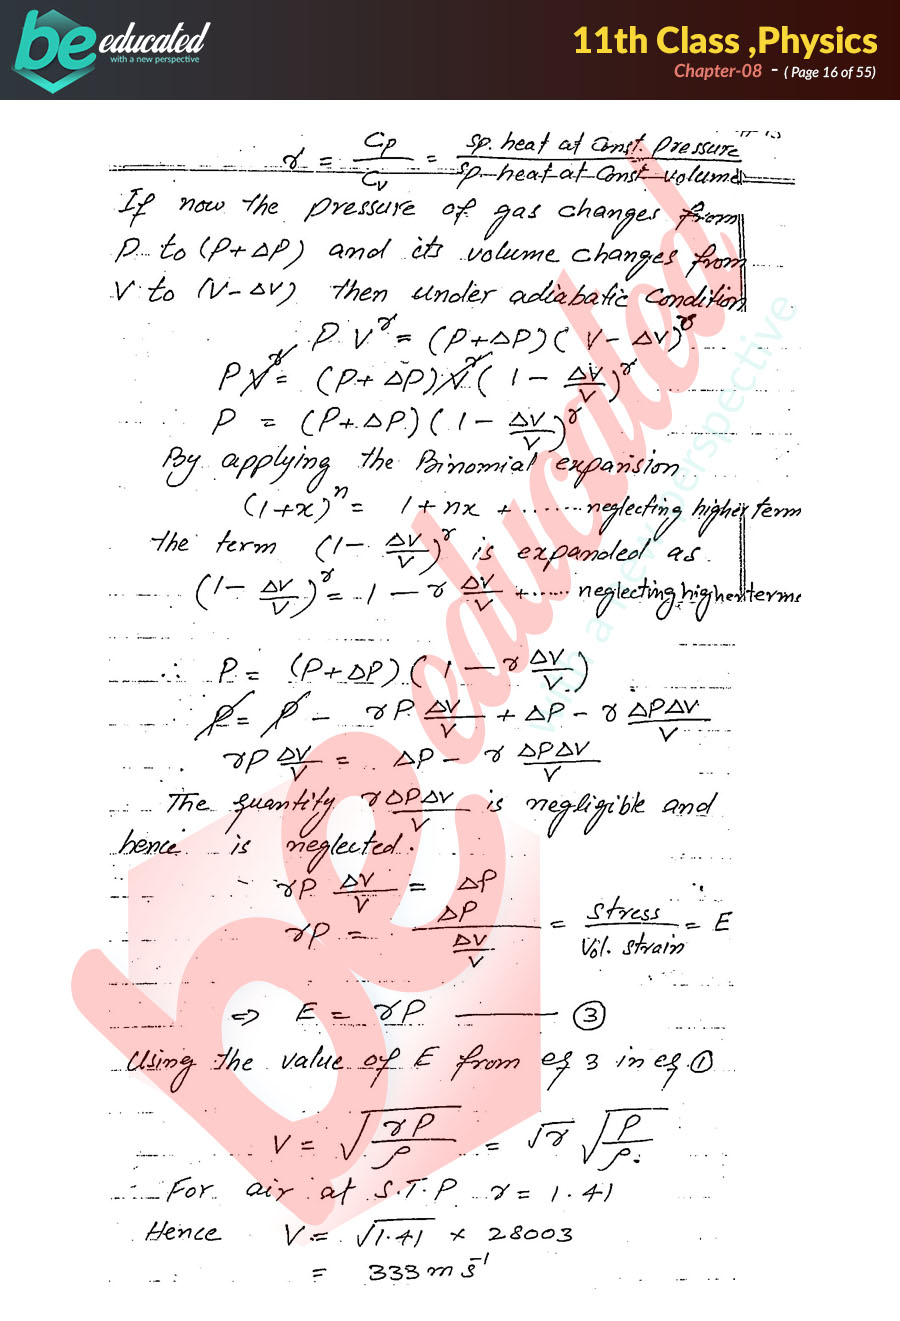 be educated
with a new perspective
11th Class ,Physics
Chapter-08 - ( Page 16 of 55)
γ = Cp / Cv = Sp. heat at Const. Pressure / Sp. heat at Const. volume
If now the pressure of gas changes from
P to (P + ΔP) and its volume changes from
V to (V - ΔV) then under adiabatic Condition
P V^γ = (P + ΔP) (V - ΔV)^γ
P V^γ = (P + ΔP) V^γ (1 - ΔV/V)^γ
P = (P + ΔP) (1 - ΔV/V)^γ
By applying the Binomial expansion
(1+x)^n = 1 + nx + ....... neglecting higher term
the term (1 - ΔV/V)^γ is expanded as
(1 - ΔV/V)^γ = 1 - γ ΔV/V + ...... neglecting higher terms
∴ P = (P + ΔP) (1 - γ ΔV/V)
P = P - γP ΔV/V + ΔP - γ ΔPΔV/V
γP ΔV/V = ΔP - γ ΔPΔV/V
The quantity γ ΔPΔV/V is negligible and
hence is neglected.
γP ΔV/V = ΔP
γP = ΔP / (ΔV/V) = Stress / Vol. Strain = E
⇒ E = γP ——— ③
Using the value of E from eq 3 in eq. ①
V = √(γP/ρ) = √γ √(P/ρ)
For air at S.T.P γ = 1.41
Hence V = √1.41 × 28003
= 333 m s⁻¹
be educated
with a new perspective